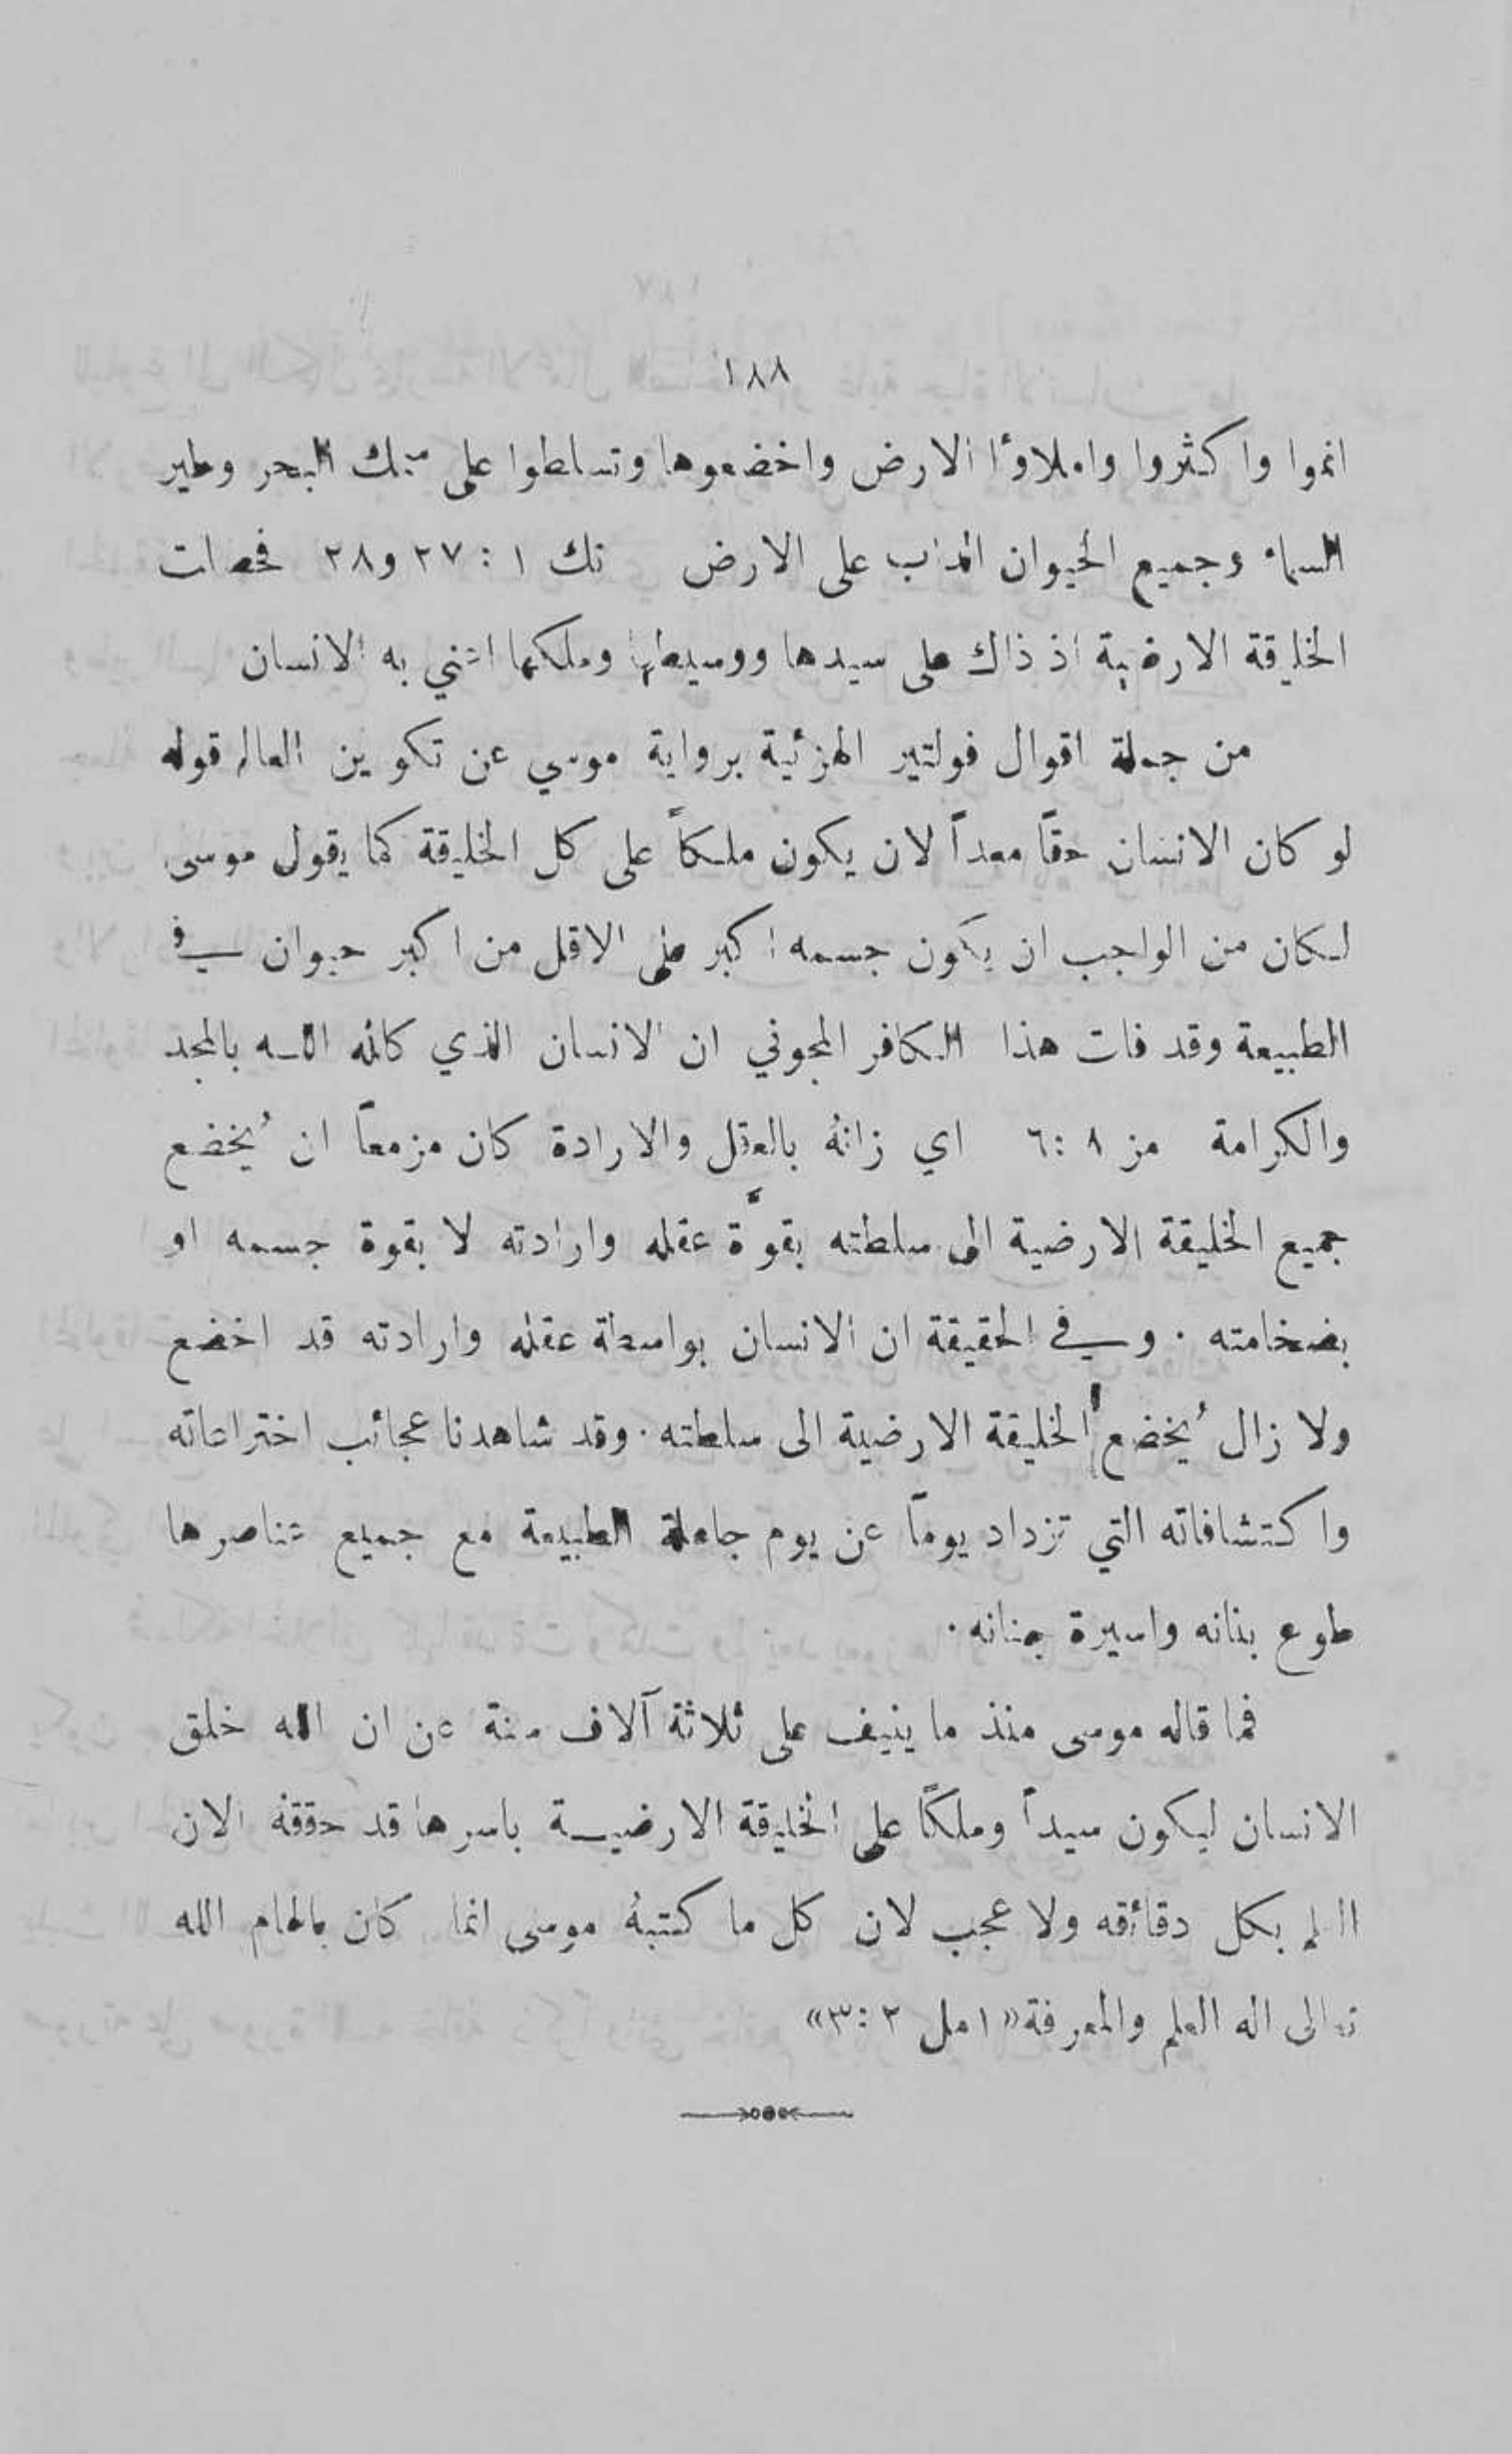 ١٨٨
انموا واكثروا واملاوٴا الارض واخضعوها وتسلطوا على سمك البحر وطير
السماء وجميع الحيوان الداب على الارض تك ١ : ٢٧ و٢٨ فحصلت
الخليقة الارضية اذ ذاك على سيدها ووسيطها وملكها اعني به الانسان
من جملة اقوال فولتير الهزئية برواية موسي عن تكوين العالم قوله
لو كان الانسان حقاً معداً لان يكون ملكاً على كل الخليقة كما يقول موسى
لكان من الواجب ان يكون جسمه اكبر على الاقل من اكبر حيوان في
الطبيعة وقد فات هذا الكافر المجوني ان الانسان الذي كلله الله بالمجد
والكرامة مز ٨ :٦ اي زانهُ بالعقل والارادة كان مزمعاً ان يُخضع
جميع الخليقة الارضية الى سلطته بقوَّة عقله وارادته لا بقوة جسمه او
بضخامته . وفي الحقيقة ان الانسان بواسطة عقله وارادته قد اخضع
ولا زال يُخضع الخليقة الارضية الى سلطته . وقد شاهدنا عجائب اختراعاته
واكتشافاته التي تزداد يوماً عن يوم جاعلة الطبيعة مع جميع عناصرها
طوع بنانه واسيرة جنانه .
فما قاله موسى منذ ما ينيف على ثلاثة آلاف سنة عن ان الله خلق
الانسان ليكون سيداً وملكاً على الخليقة الارضية باسرها قد حققهُ الان
العلم بكل دقائقه ولا عجب لان كل ما كتبهُ موسى انما كان بالهام الله
تعالى اله العلم والمعرفة «١ مل ٢ :٣»